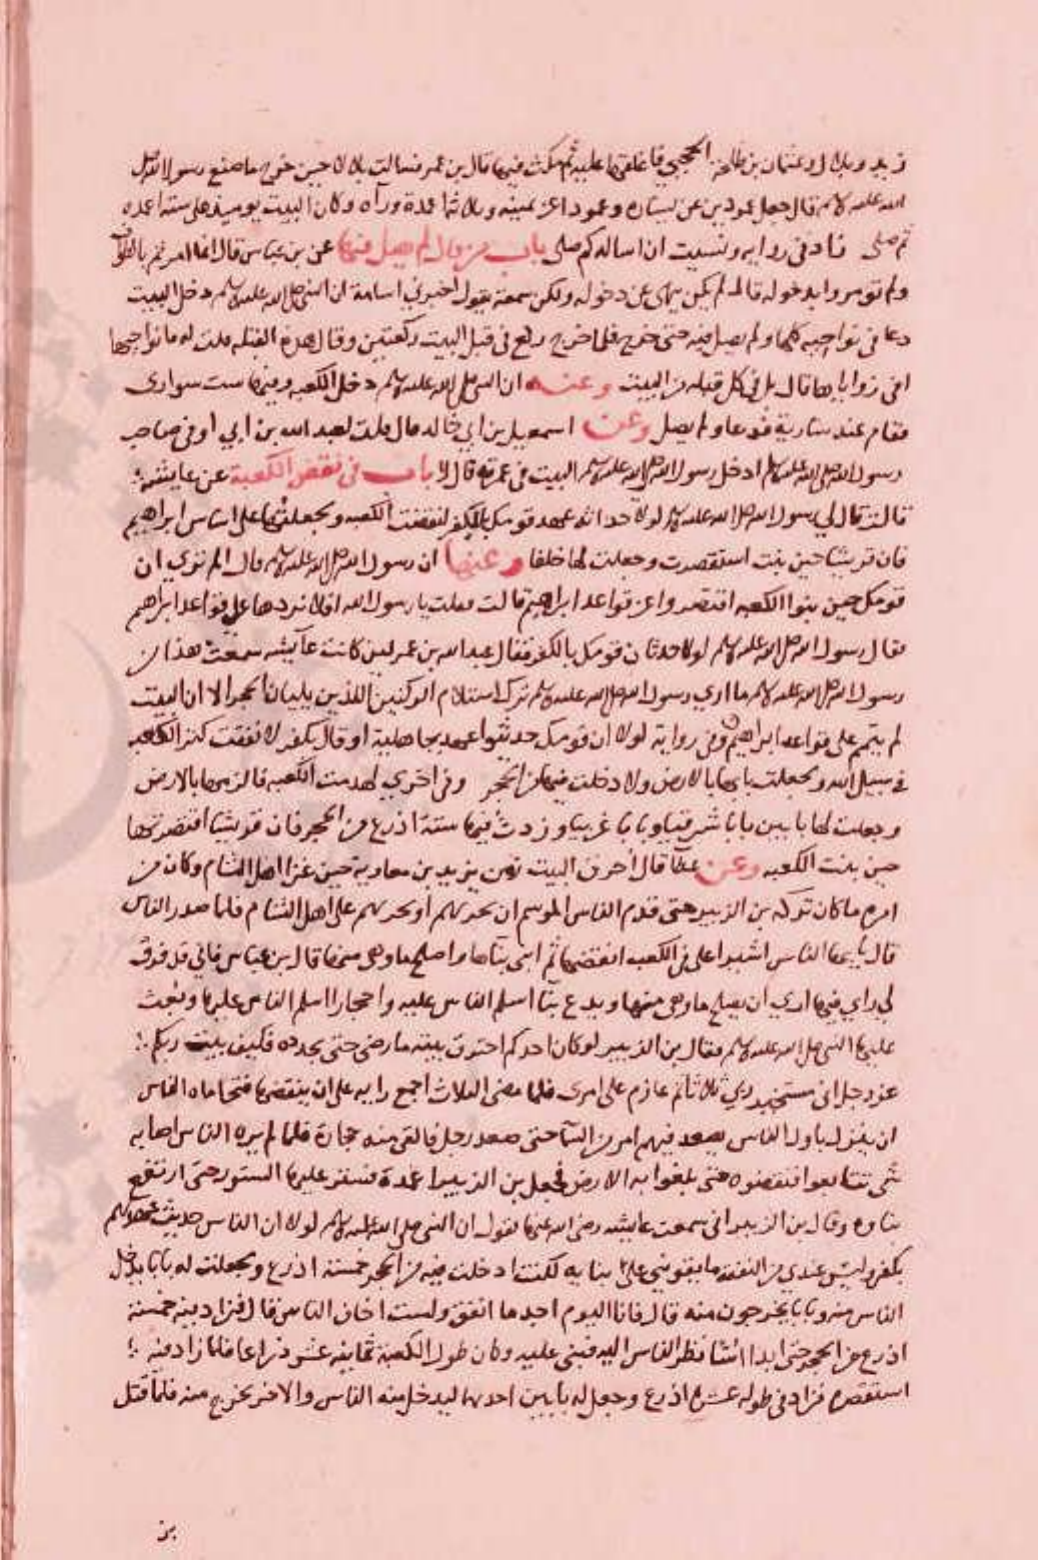 زيد وبلال وعثمان بن طلحة الحجبي فاغلقها عليه ثم مكث فيها قال بن عمر فسالت بلالا حين خرج ما صنع رسول الله صلى
الله عليه وسلم قال جعل عمودين عن يساره وعمودا عن يمينه وثلاثة اعمدة ورآه وكان البيت يوميذ على ستة اعمدة
ثم صلى زاد في رواية ونسيت ان اساله كم صلى باب من قال لم يصل فيها عن بن عباس قال انما امرتم بالطواف
ولم تومروا بدخوله قال لم يكن ينهى عن دخوله ولكن سمعته يقول اخبرني اسامة ان النبي صلى الله عليه وسلم دخل البيت
دعا في نواحيه كلها ولم يصل فيه حتى خرج فلما خرج ركع في قبل البيت ركعتين وقال هذه القبله قلت له ما نواحيها
افي زواياها قال بل في كل قبلة من البيت وعنه ان النبي صلى الله عليه وسلم دخل الكعبه وفيها ست سواري
فقام عند سارية فدعا ولم يصل وعن اسمعيل بن ابي خالد قال قلت لعبد الله بن ابي اوفى صاحب
رسول الله صلى الله عليه وسلم ادخل رسول الله صلى الله عليه وسلم البيت في عمرته قال لا باب في نقض الكعبة عن عايشة
قالت قال لي رسول الله صلى الله عليه وسلم لولا حداثة عهد قومك بالكفر لنقضت الكعبه ولجعلتها على اساس ابراهيم
فان قريشا حين بنت استقصرت وجعلت لها خلفا وعنها ان رسول الله صلى الله عليه وسلم قال الم تري ان
قومك حين بنوا الكعبه اقتصروا عن قواعد ابراهيم قالت فقلت يا رسول الله افلا نردها على قواعد ابراهيم
فقال رسول الله صلى الله عليه وسلم لولا حدثان قومك بالكفر فقال عبد الله بن عمر لين كانت عايشه سمعت هذا من
رسول الله صلى الله عليه وسلم ما اري رسول الله صلى الله عليه وسلم ترك استلام الركنين اللذين يليان الحجر الا ان البيت
لم يتم على قواعد ابراهيم وفي رواية لولا ان قومك حديثوا عهد بجاهلية او قال بكفر لانفقت كنز الكعبه
في سبيل الله ولجعلت بابها بالارض ولادخلت فيها من الحجر وفي اخرى لهدمت الكعبه فالزمتها بالارض
وجعلت لها بابين بابا شرقيا وبابا غربيا وزدت فيها ستة اذرع من الحجر فان قريشا اقتصرتها
حين بنت الكعبه وعن عطا قال احرق البيت زمن يزيد بن معاوية حين غزا اهل الشام وكان من
امره ما كان تركه بن الزبير حتى قدم الناس الموسم ان يجريهم او يحربهم على اهل الشام فلما صدر الناس
قال يايها الناس اشيروا علي في الكعبه انقضها ثم ابني بناها او اصلح ما وهى منها قال بن عباس فاني قد فرق
لي راي فيها ارى ان يصلح ما وهى منها ويدع بيتا اسلم الناس عليه واحجارا اسلم الناس عليها وبعث
عليها النبي صلى الله عليه وسلم فقال بن الزبير لو كان احدكم احترق بيته ما رضي حتى يجدده فكيف بيت ربكم
عز وجل اني مستخير ربي ثلاثا ثم عازم على امري فلما مضى الثلاث اجمع رايه على ان ينقضها فتحاماه الناس
ان ينزل باول الناس يصعد فيهم امر من السما حتى صعد رجل فالقى منه حجارة فلما لم يره الناس اصابه
شي تتابعوا فنقضوه حتى بلغوا به الارض فجعل بن الزبير اعمدة فستر عليها الستور حتى ارتفع
بناوه وقال بن الزبير اني سمعت عايشه رضي الله عنها تقول ان النبي صلى الله عليه وسلم لولا ان الناس حديث عهدهم
بكفر وليس عندي من النفقه ما يقويني على بنايه لكنت ادخلت فيه من الحجر خمسة اذرع ولجعلت له بابا يدخل
الناس منه وبابا يخرجون منه قال فانا اليوم اجد ما انفق ولست اخاف الناس قال فزاد فيه خمسة
اذرع من الحجر حتى ابدا اسا نظر الناس اليه فبنى عليه وكان طول الكعبة ثمانيه عشر ذراعا فلما زاد فيه
استقصره فزاد في طوله عشرة اذرع وجعل له بابين احدهما ليدخل منه الناس والاخر يخرج منه فلما قتل
بن